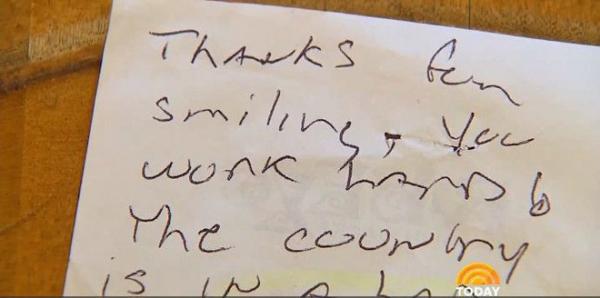 THANKS for
smiling, You
WORK HARD &
The country
is in a
TODAY